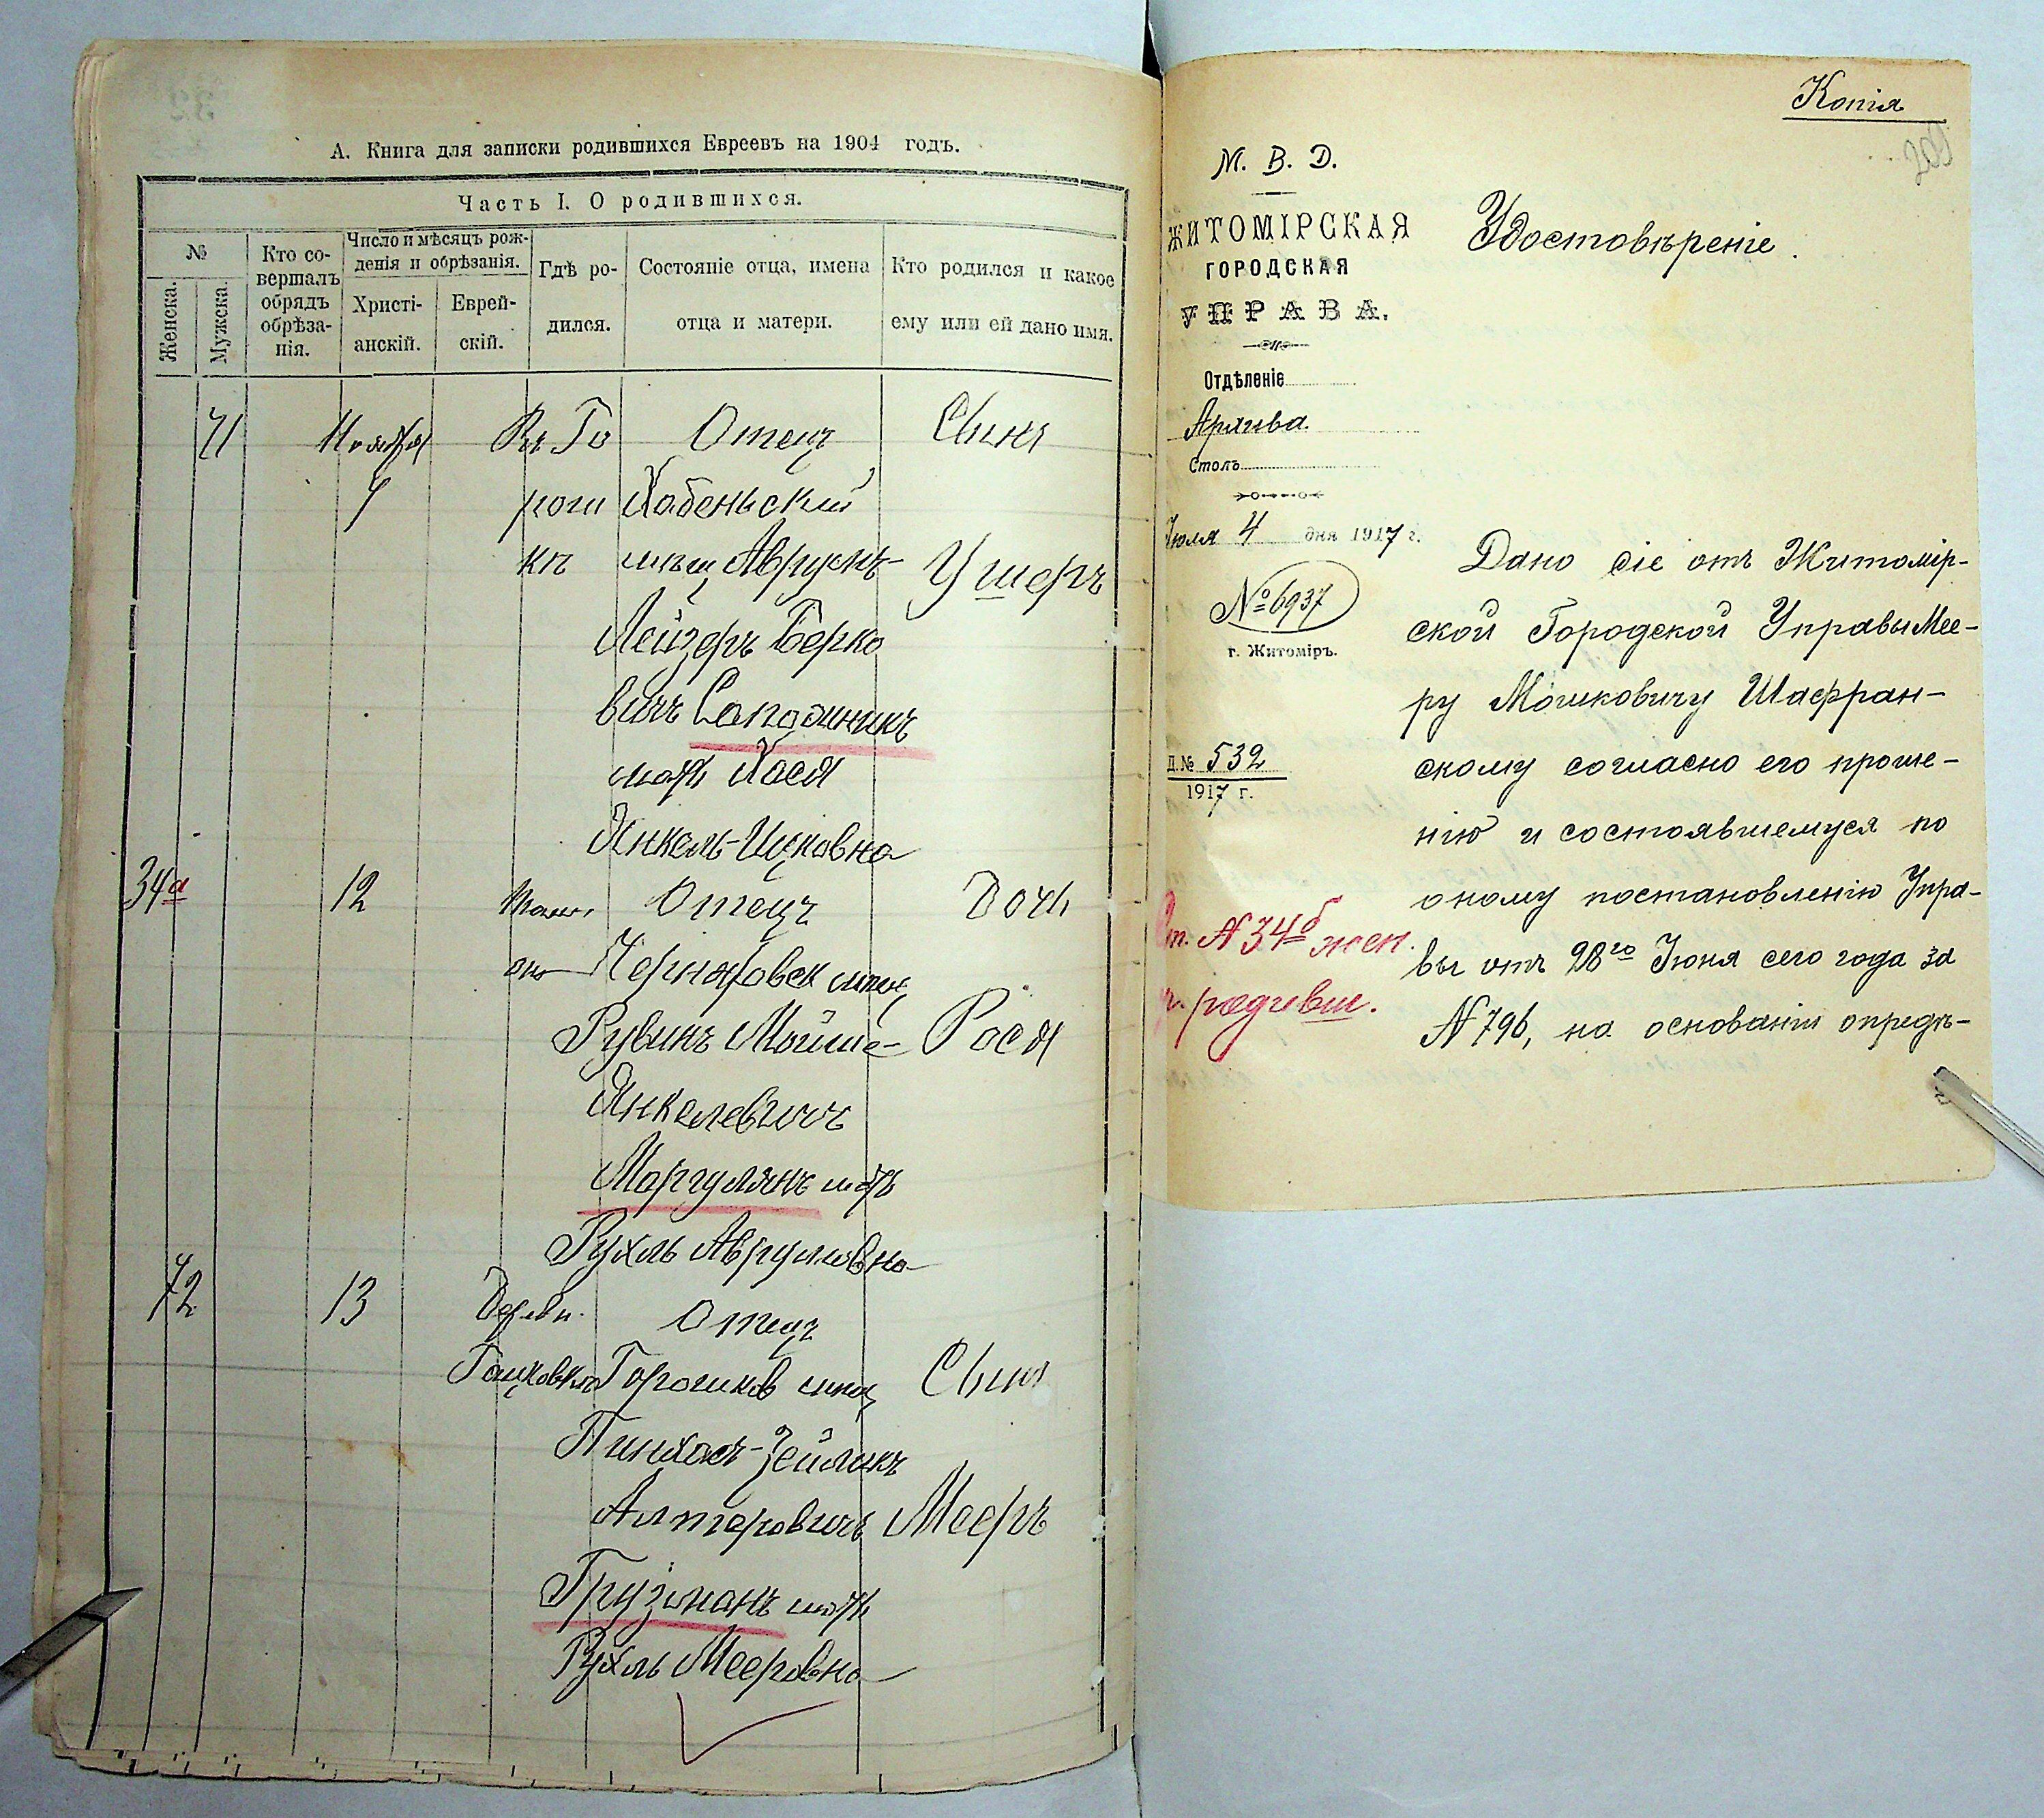 А. Книга для записки родившихся Евреевъ на 1904 годъ.
Часть I. О родившихся.
№
Женска.
Мужска.
Кто со-
вершалъ
обрядъ
обрѣза-
нія.
Число и мѣсяцъ рож-
денія и обрѣзанія.
Христі-
анскій.
Еврей-
скій.
Гдѣ ро-
дился.
Состояніе отца, имена
отца и матери.
Кто родился и какое
ему или ей дано имя.
71 Ноября Въ Го Отецъ Сынъ
рош Хабеньский
кѣ мѣщ Аврумъ- Ушеръ
Лейзеръ Берко
вичъ Сапожникъ
мать Хася
Янкель-Ицковна
34а 12 Отецъ Дочь
Черняховск мѣщ
Рувинъ Мойше- Рося
Янкелевичъ
Маргулянъ мать
Рухль Аврумовна
72 13 Отецъ
Горошков мѣщ Сынъ
Пинхасъ-Зейликъ
Алтеровичъ Мееръ
Грузманъ мать
Рухль Мееровна
Копія
М. В. Д.
ЖИТОМІРСКАЯ
ГОРОДСКАЯ
УПРАВА.
Отдѣленіе
Архива.
Столъ
Іюля 4 дня 1917 г.
№ 6937
г. Житоміръ.
Д. № 532
1917 г.
№ 34б жен.
родивш.
Удостовѣреніе.
Дано сіе отъ Житомір-
ской Городской Управы Мее-
ру Мошковичу Шафран-
скому согласно его проше-
нію и состоявшемуся по
оному постановленію Упра-
вы отъ 28го Іюня сего года за
№ 796, на основаніи опредѣ-